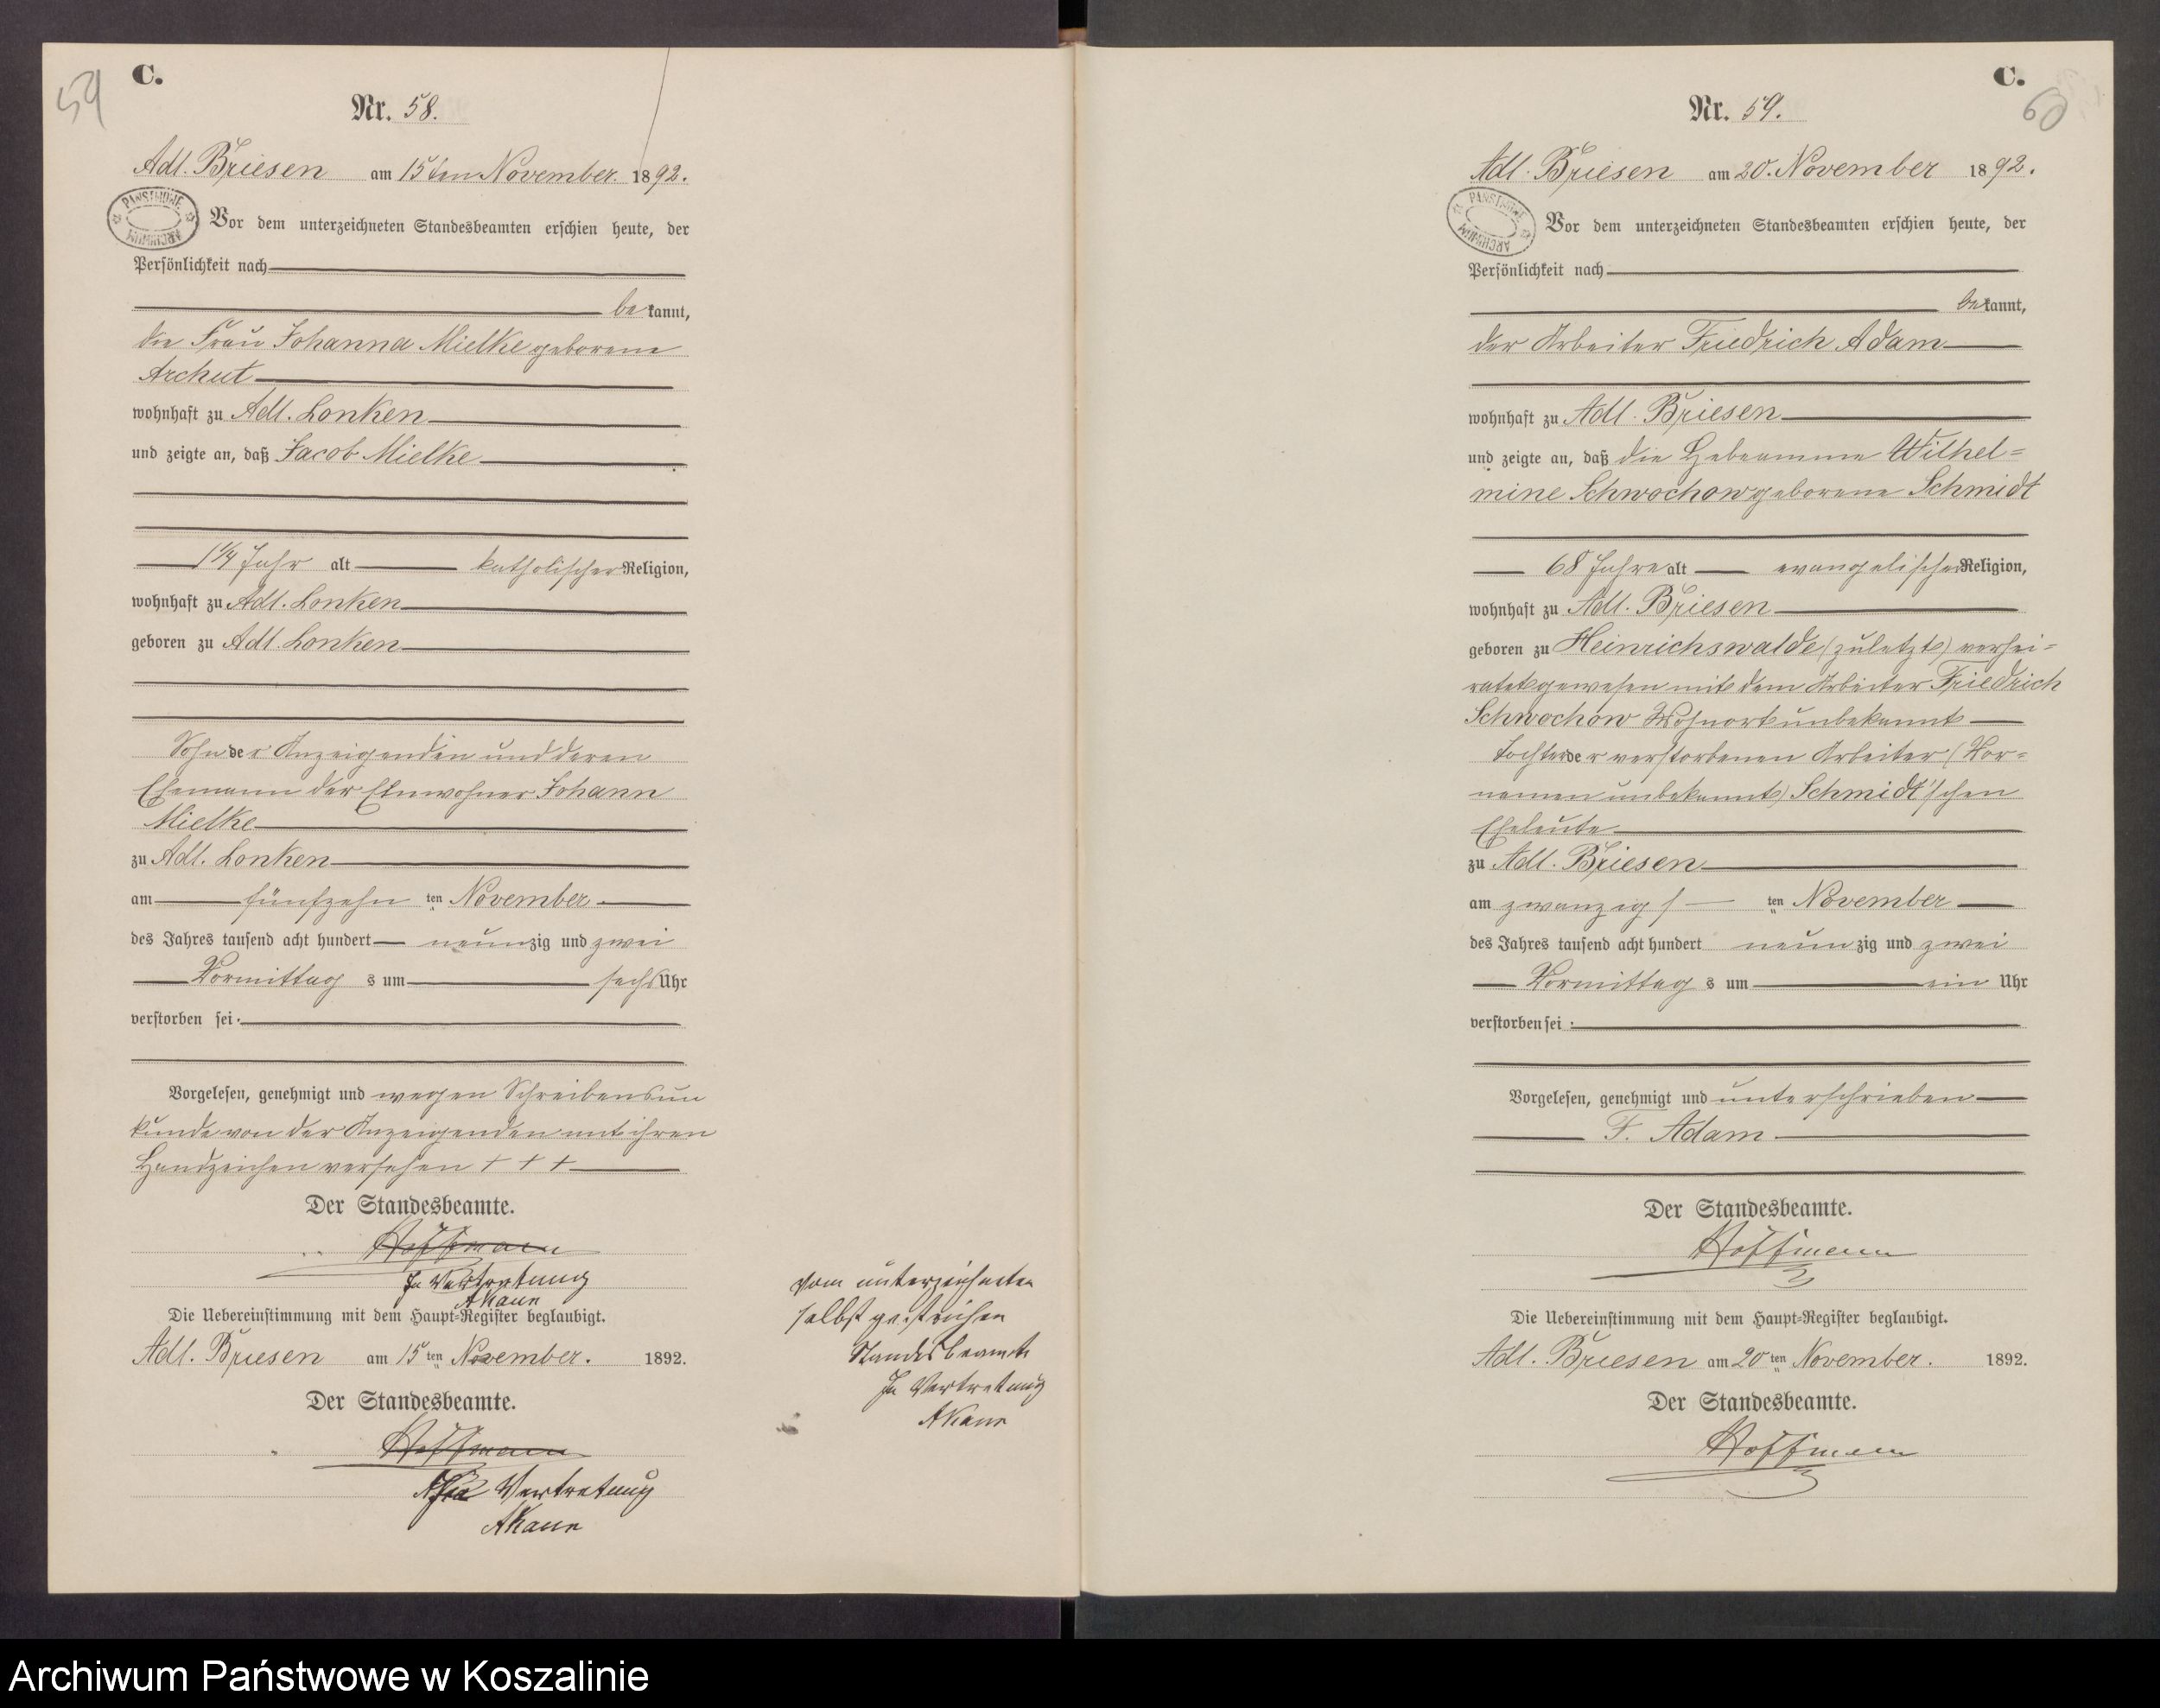 59
C.
Nr. 58.
Adl. Briesen am 15ten November. 1892.
PAŃSTWOWE ARCHIWUM
Vor dem unterzeichneten Standesbeamten erschien heute, der
Persönlichkeit nach
bekannt,
die Frau Johanna Mielke geborene
Archut
wohnhaft zu Adl. Lonken
und zeigte an, daß Jacob Mielke
1 1/4 Jahr alt katholischer Religion,
wohnhaft zu Adl. Lonken
geboren zu Adl. Lonken
Sohn der Anzeigenden und deren
Ehemann der Einwohner Johann
Mielke
zu Adl. Lonken
am fünfzehn ten November
des Jahres tausend acht hundert neunzig und zwei
Vormittags um sechs Uhr
verstorben sei.
Vorgelesen, genehmigt und wegen Schreibensun
kunde von der Anzeigenden mit ihren
Handzeichen versehen + + +
Der Standesbeamte.
Hoffmann
In Vertretung
Die Uebereinstimmung mit dem Haupt-Register beglaubigt.
Adl. Briesen am 15ten November. 1892.
Der Standesbeamte.
Hoffmann
Vertretung
vom unterzeichneten
selbst gestrichen
Standesbeamte
In Vertretung
C.
60
Nr. 59.
Adl. Briesen am 20. November 1892.
PAŃSTWOWE ARCHIWUM
Vor dem unterzeichneten Standesbeamten erschien heute, der
Persönlichkeit nach
bekannt,
der Arbeiter Friedrich Adam
wohnhaft zu Adl. Briesen
und zeigte an, daß die Hebeamme Wilhel=
mine Schwochow geborene Schmidt
68 Jahre alt evangelischer Religion,
wohnhaft zu Adl. Briesen
geboren zu Heinrichswalde (zuletzt) verhei-
ratet gewesen mit dem Arbeiter Friedrich
Schwochow Wohnort unbekannt
Tochter der verstorbenen Arbeiter (Vor=
namen unbekannt) Schmidt'schen
Eheleute
zu Adl. Briesen
am zwanzigs ten November
des Jahres tausend acht hundert neunzig und zwei
Vormittags um ein Uhr
verstorben sei:
Vorgelesen, genehmigt und unterschrieben
F. Adam
Der Standesbeamte.
Hoffmann
Die Uebereinstimmung mit dem Haupt-Register beglaubigt.
Adl. Briesen am 20ten November. 1892.
Der Standesbeamte.
Hoffmann
Archiwum Państwowe w Koszalinie